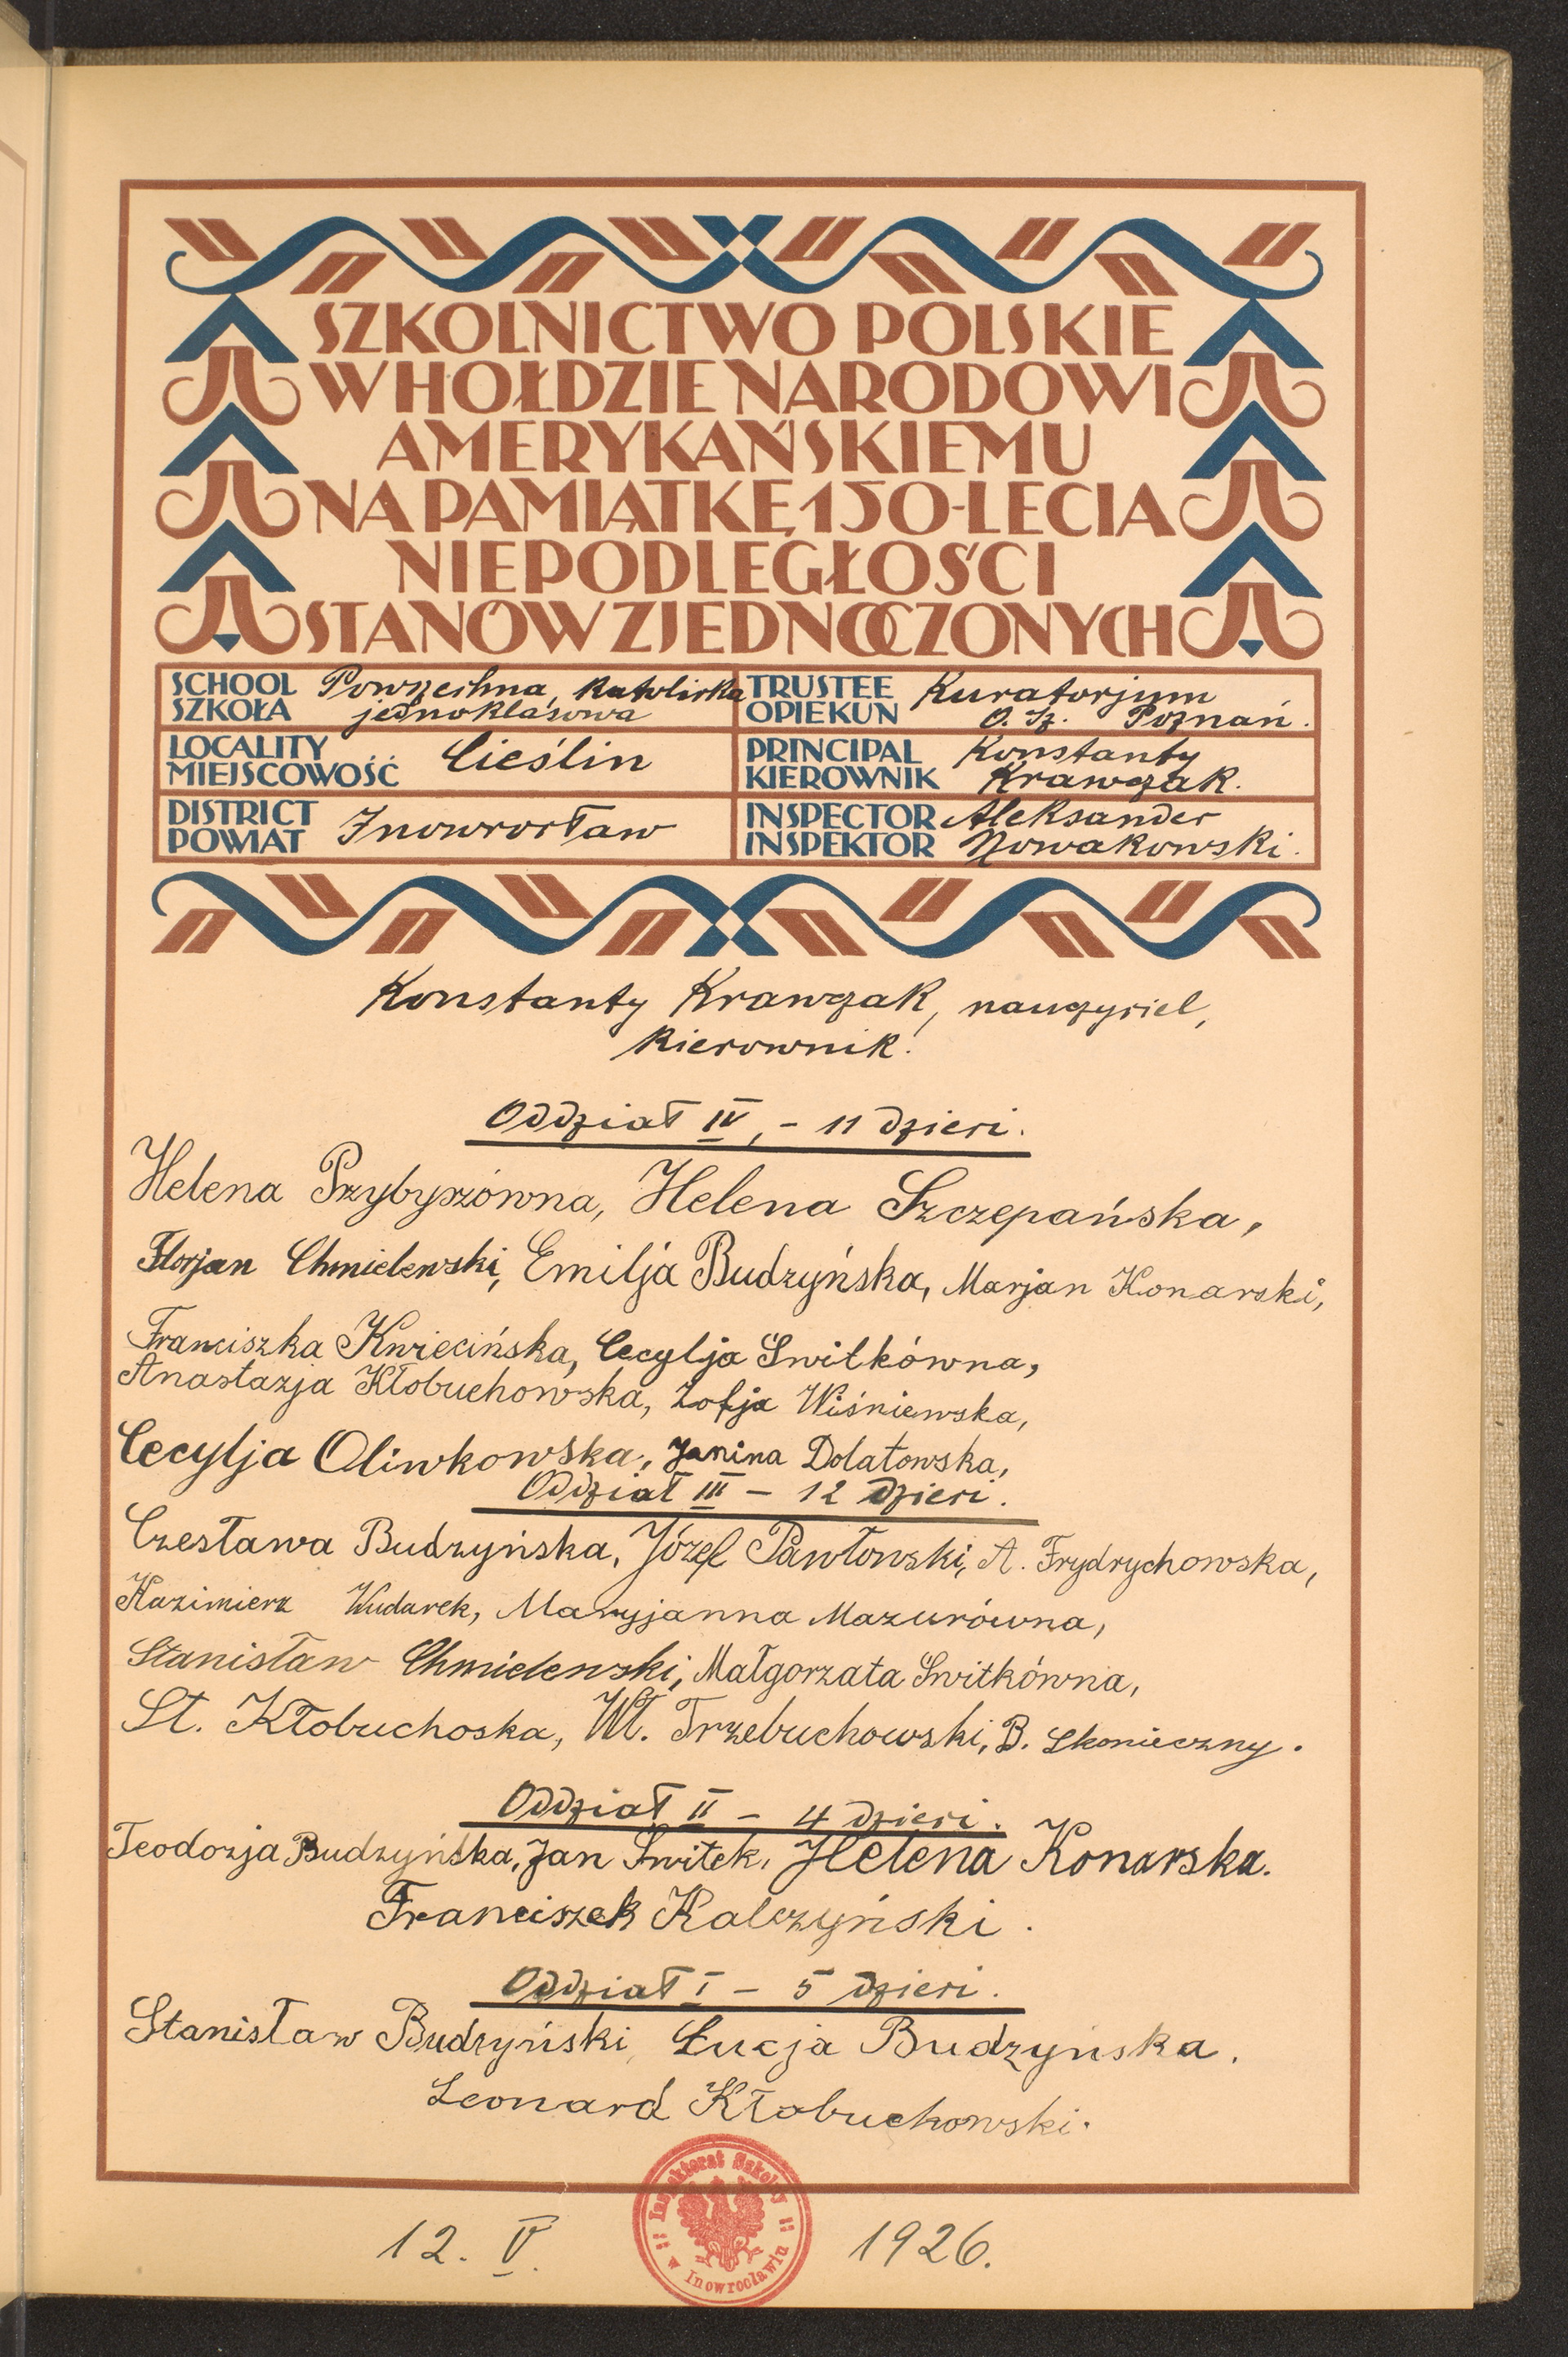 SZKOLNICTWO POLSKIE
W HOŁDZIE NARODOWI
AMERYKAŃSKIEMU
NA PAMIĄTKĘ 150-LECIA
NIEPODLEGŁOŚCI
STANÓW ZJEDNOCZONYCH
SCHOOL SZKOŁA Powszechna, Katolicka jednoklasowa
TRUSTEE OPIEKUN Kuratorjum O. Sz. Poznań.
LOCALITY MIEJSCOWOŚĆ Cieślin
PRINCIPAL KIEROWNIK Konstanty Krawczak.
DISTRICT POWIAT Inowrocław
INSPECTOR INSPEKTOR Aleksander Nowakowski.
Konstanty Krawczak, nauczyciel,
kierownik.
Oddział IV, - 11 dzieci.
Helena Przybyszówna, Helena Szczepańska,
Florjan Chmielewski, Emilja Budzyńska, Marjan Konarski,
Franciszka Kwiecińska, Cecylja Switkówna,
Anastazja Kłobuchowska, Zofja Wiśniewska,
Cecylja Oliwkowska, Janina Dolatowska,
Oddział III - 12 dzieci.
Czesława Budzyńska, Józef Pawłowski, A. Frydrychowska,
Kazimierz Wudarek, Maryjanna Mazurówna,
Stanisław Chmielewski, Małgorzata Switkówna,
St. Kłobuchoska, Wł. Trzebuchowski, B. Skonieczny.
Oddział II - 4 dzieci.
Teodozja Budzyńska, Jan Switek, Helena Konarska.
Franciszek Kalczyński.
Oddział I - 5 dzieci.
Stanisław Budzyński, Łucja Budzyńska.
Leonard Kłobuchowski.
Inspektorat Szkolny w Inowrocławiu
12. V. 1926.